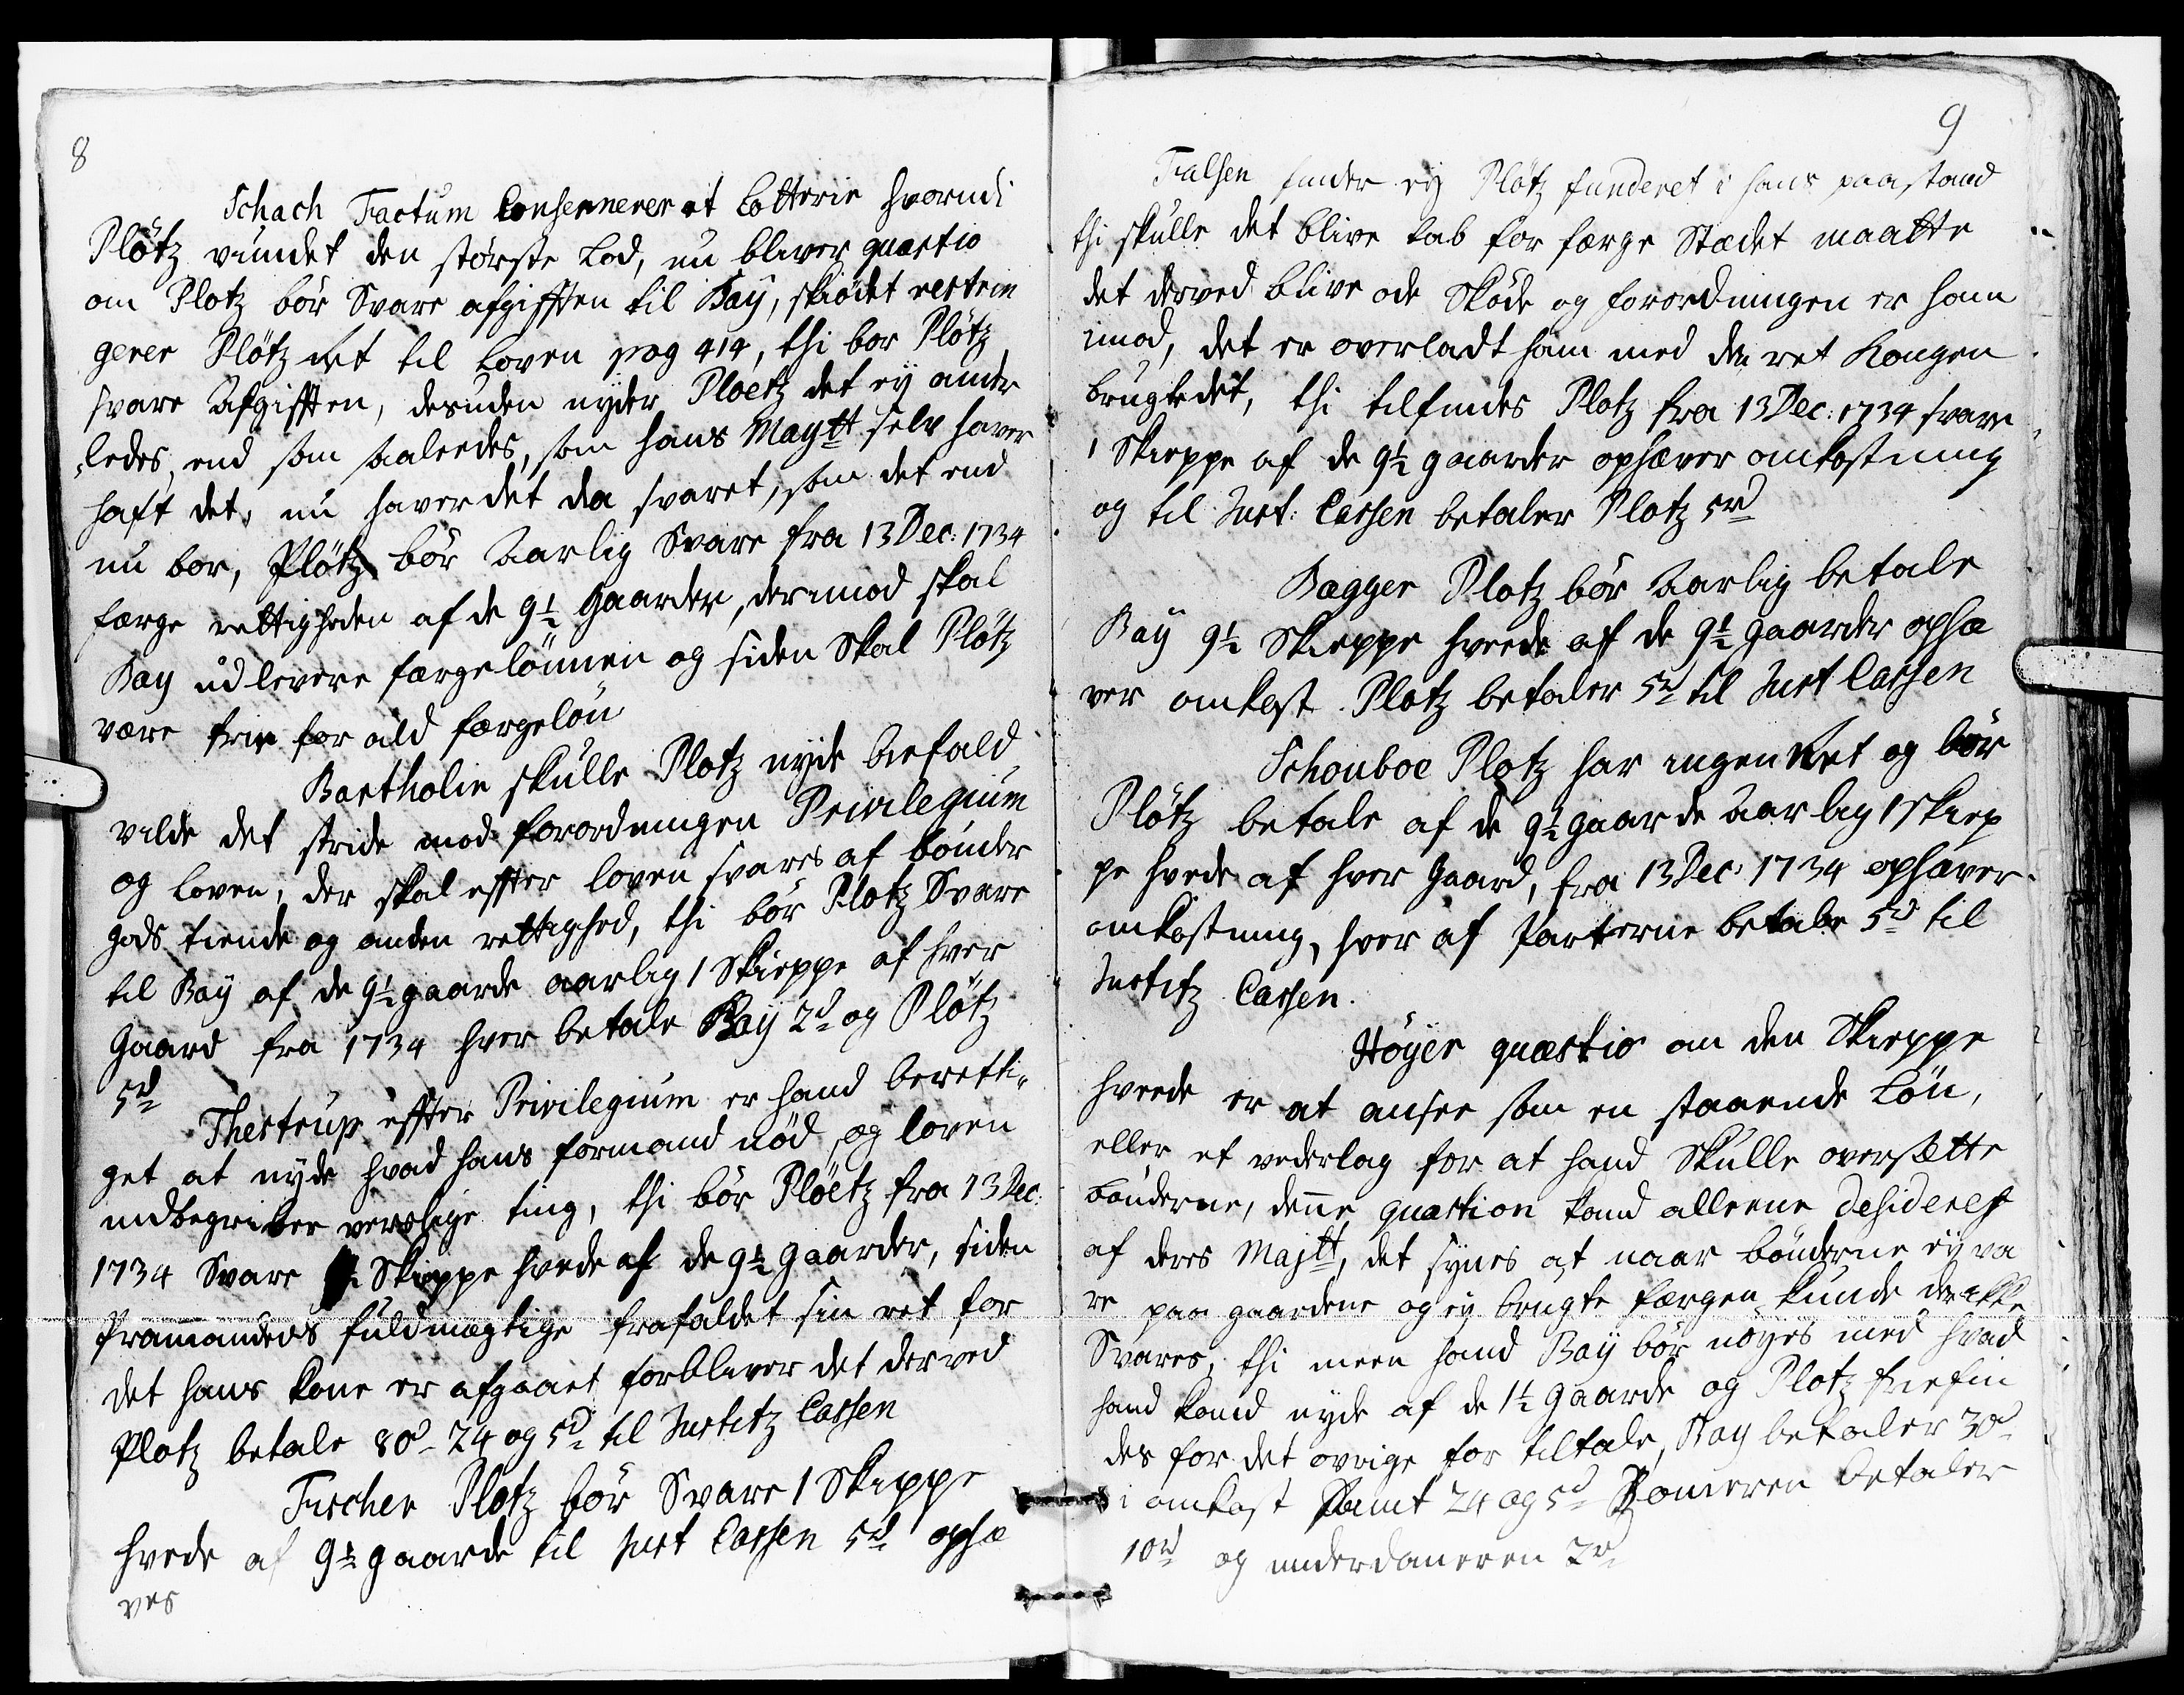 8
Schach Factum Consernerer et Lotterie hvorudi
Plötz vundet den störste Lod, nu bliver quæstio
om Plotz bör Svare afgifften til Bay, skiödet restrin
gerer Plötz ret til Loven pag 414, thi bor Plötz
svare Afgifften, desuden nyder Ploetz det ey ander
ledes, end som saaledes, som hans Maytt selv haver
haft det, nu haver det da svaret, som det end
nu bor, Plötz bör Aarlig Svare fra 13 Dec: 1734
færge rettigheden af de 9½ Gaarder, derimod skal
Bay udlevere færgelönnen og siden Skal Plötz
være frie for ald færgelön
Bartholin skulle Plotz nyde befald
vilde det stride mod forordningen Privilegium
og Loven, der skal effter loven svares af bönder
gods tiende og anden rettighed, thi bör Plotz Svare
til Bay af de 9½ gaarde aarlig 1 Skieppe af hver
Gaard fra 1734 hver betale Bay 2d og Plötz
5d
Thestrup effter Privilegium er hand beretti
get at nyde hvad hans formand nöd, og loven
indbegriber verslige ting, thi bör Plöetz fra 13 Dec:
1734 Svare Skieppe hvede af de 9½ gaarder, siden
Pramandens fuldmægtige frafaldet sin ret for
det hans kone er afgaaet forbliver det derved
Plotz betale 80d 24 og 5d til Justitz Cassen
Fischer Plotz bör Svare 1 Skieppe
hvede af 9½ gaarde til Just Cassen 5d ophæ
ves
9
Falsen finder ey Plötz funderet i hans paastand
thi skulle det blive tab for færge Stædet maatte
det derved blive ode Sköde og forordningen er ham
imod, det er overladt ham med den ret Kongen
brugte det, thi tilfindes Plotz fra 13 Dec: 1734 svare
1 Skieppe af de 9½ gaarder ophæver omkostning
og til Just: Cassen betaler Plotz 5rd
Bagger Plotz bör Aarlig betale
Bay 9½ Skieppe hveede af de 9½ gaarder ophæ
ver omkost Plotz betaler 5d til Just Cassen
Schouboe Plotz har ingen Ret og bör
Plötz betale af de 9½ gaarde Aarlig 1 Skiep
pe hvede af hver Gaard, fra 13 Dec: 1734 ophæver
omkostning, hver af Parterne betale 5d til
Justitz Cassen.
Höyer quæstio om den Skieppe
hveede er at ansee som en staaende Lön,
eller et vederlag for at hand Skulle oversætte
bönderne, denne quæstion kand alleene desideres
af deres Majtt, det synes at naar bönderne ey va
re paa gaardene og ey brugte færgen kunde de ikke
Svares, thi meen hand Bay bör nöyes med hvad
hand kand nyde af de 1½ gaarde og Plotz friefin
des for det ovrige for tiltale, Bay betaler 30d
i omkost samt 24 og 5d betaler
10rd og 2rd